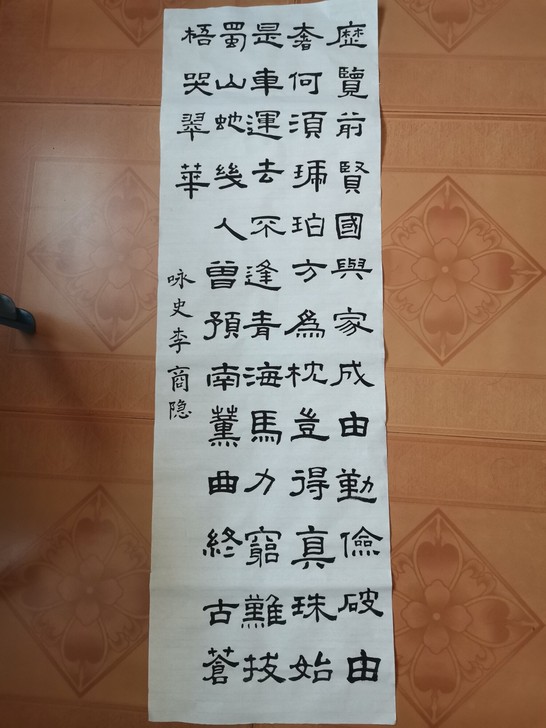 歷覽前賢國與家成由勤儉破由
奢何須琥珀方為枕豈得真珠始
是車運去不逢青海馬力窮難拔
蜀山虵幾人曾預南薰曲終古蒼
梧哭翠華
咏史李商隐